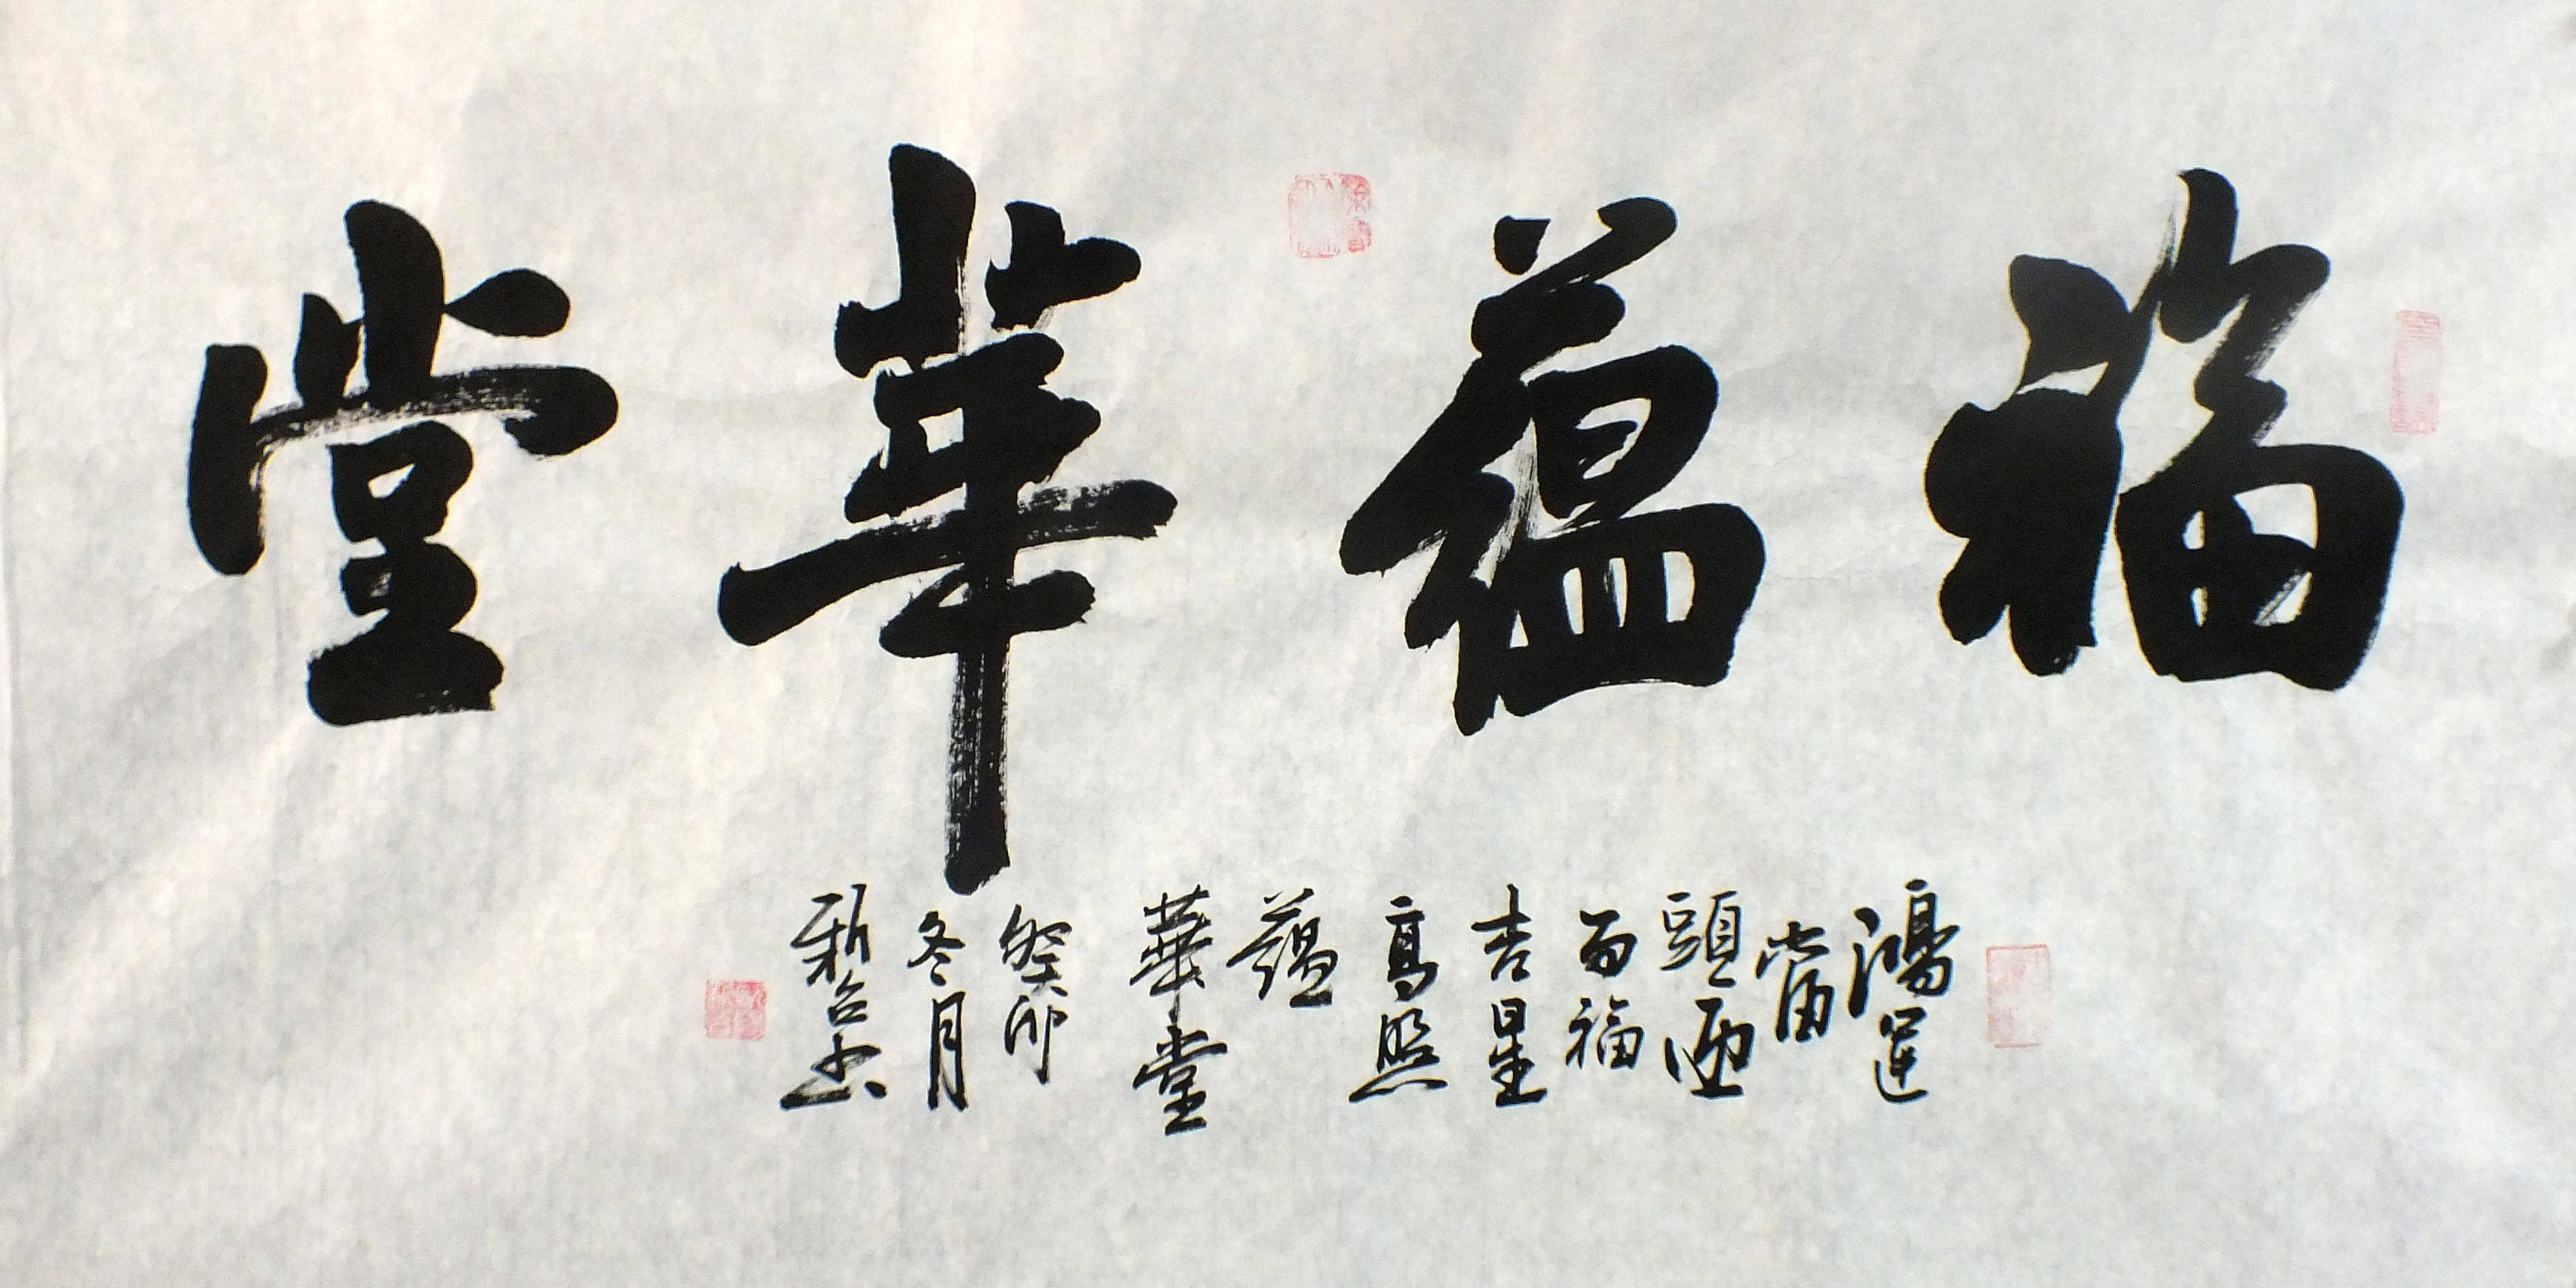 福蕴華堂
鴻運
當
頭迎
百福
吉星
高照
蕴
華堂
癸卯
冬月
新台书